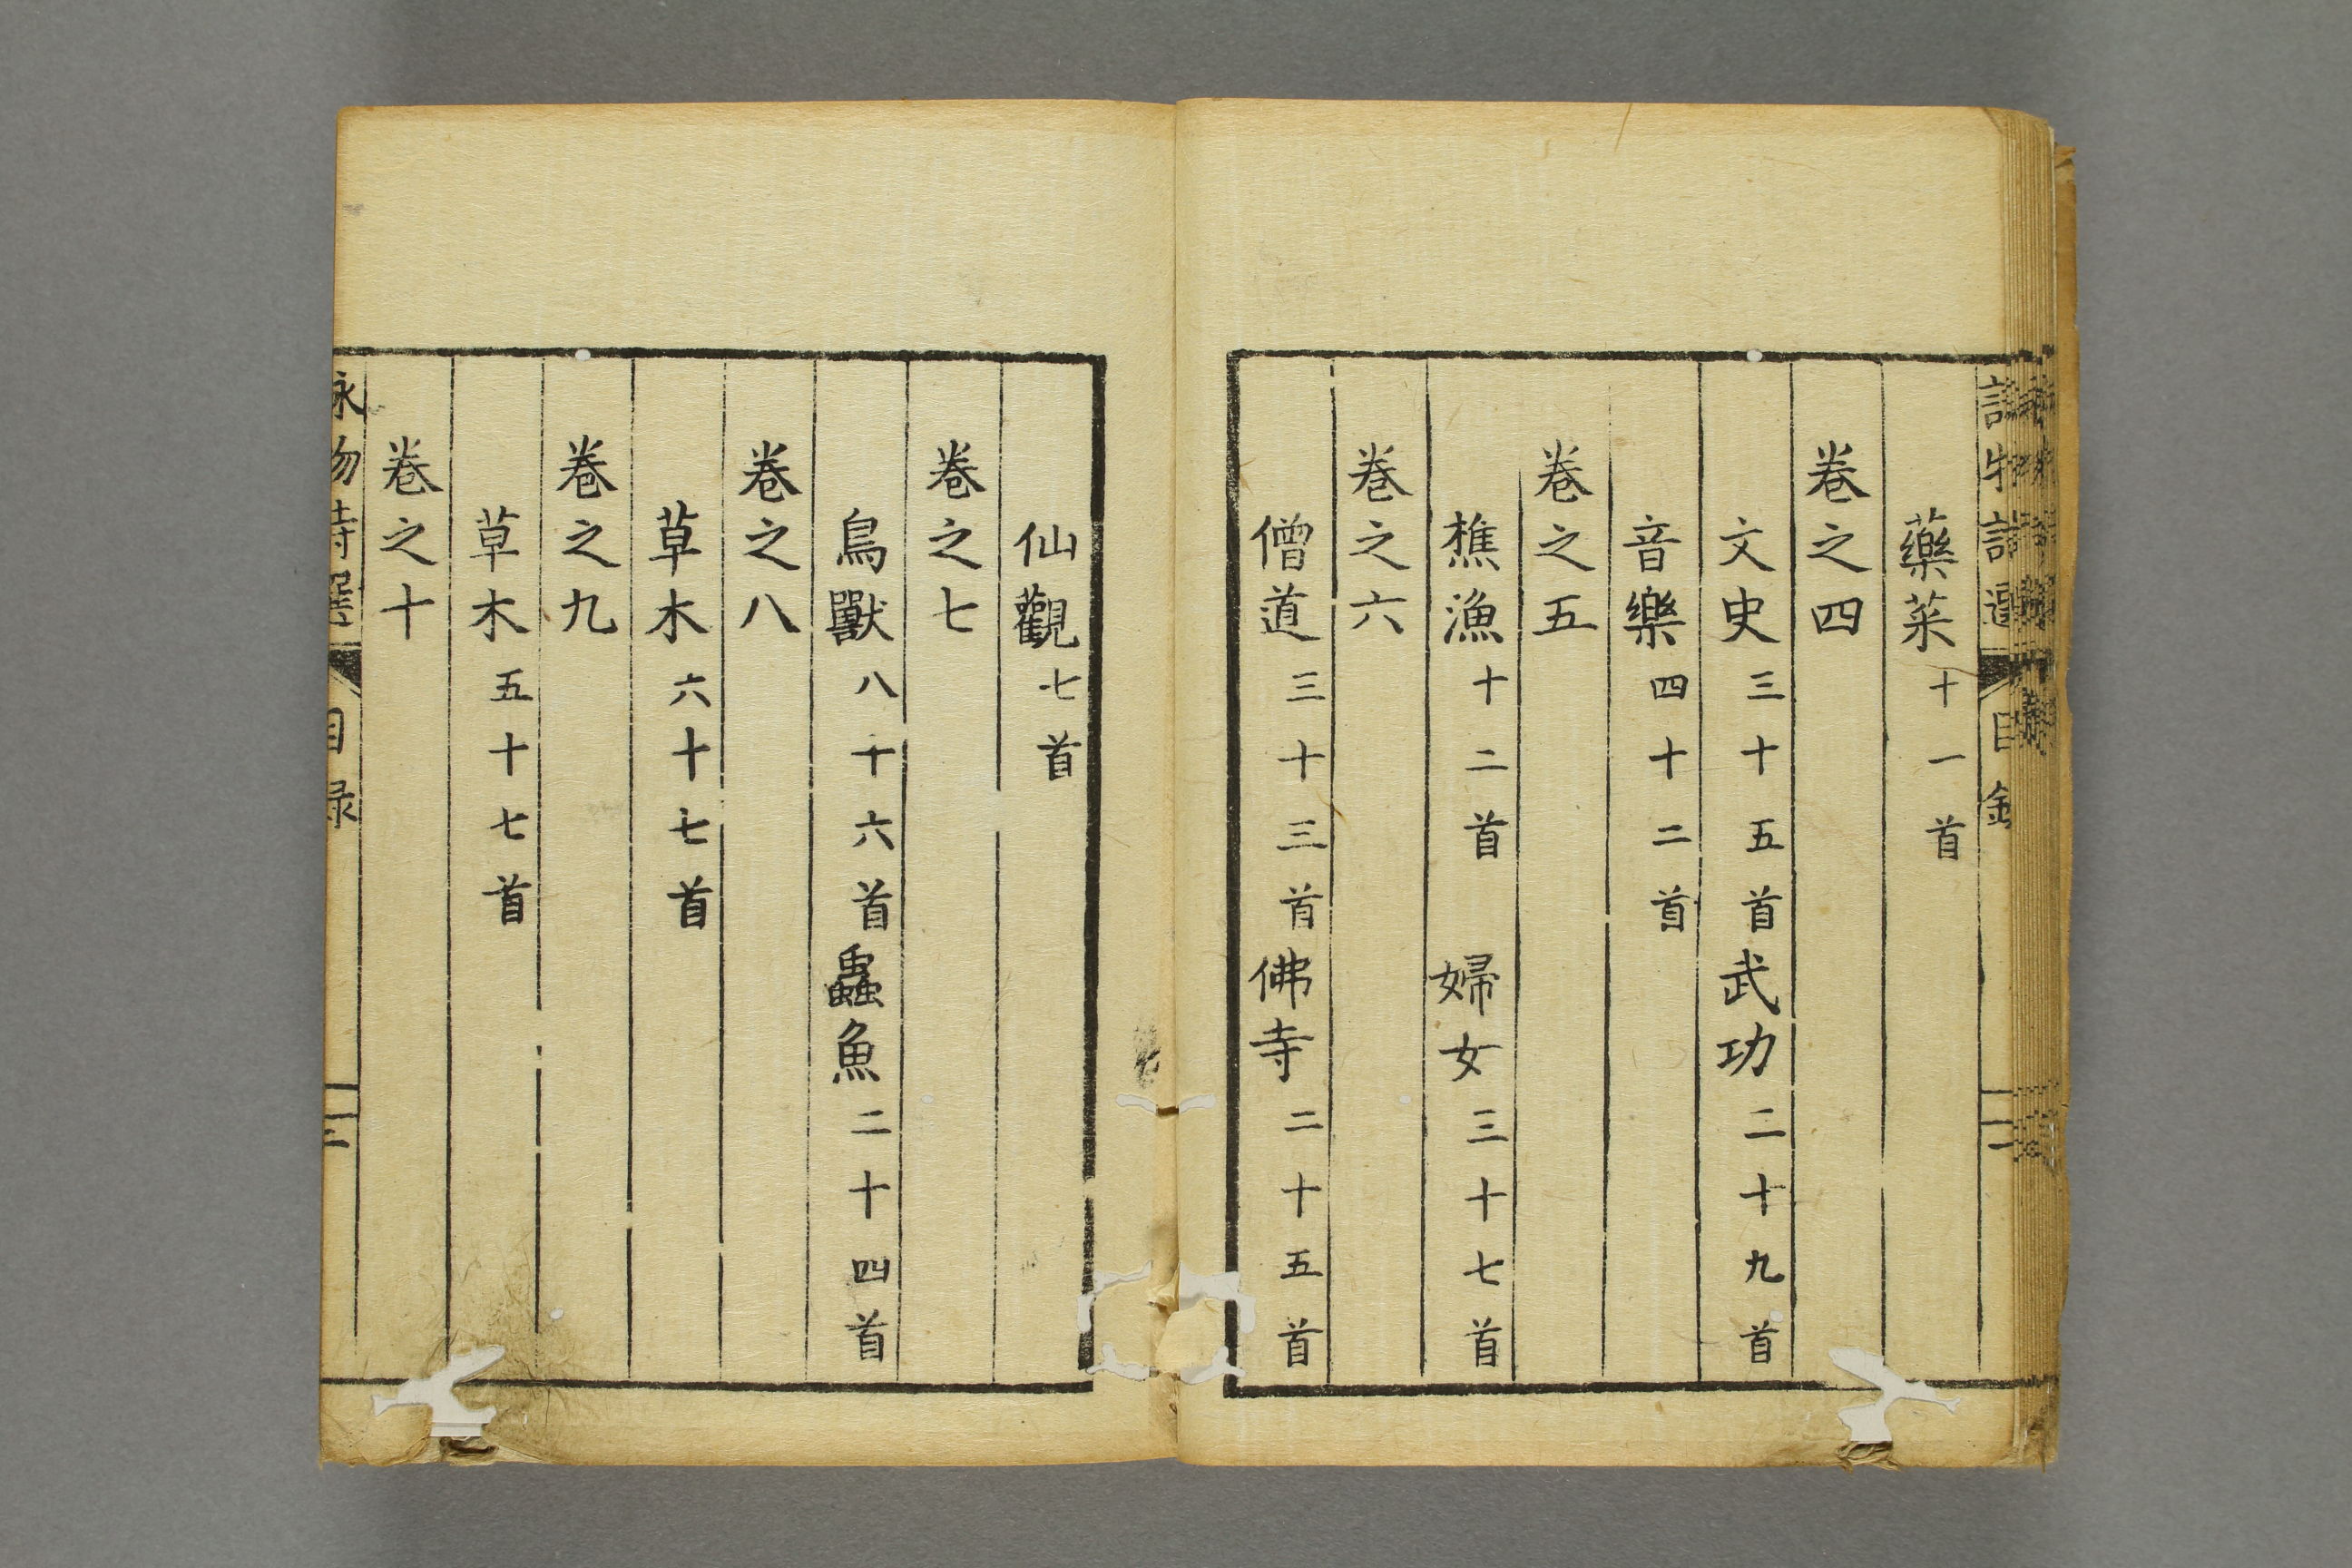 藥菜十一首
卷之四
文史三十五首武功二十九首
音樂四十二首
卷之五
樵漁十二首 婦女三十七首
卷之六
僧道三十三首佛寺二十五首
仙觀七首
卷之七
鳥獸八十六首蟲魚二十四首
卷之八
草木六十七首
卷之九
草木五十七首
卷之十
詠物詩選 目録 三